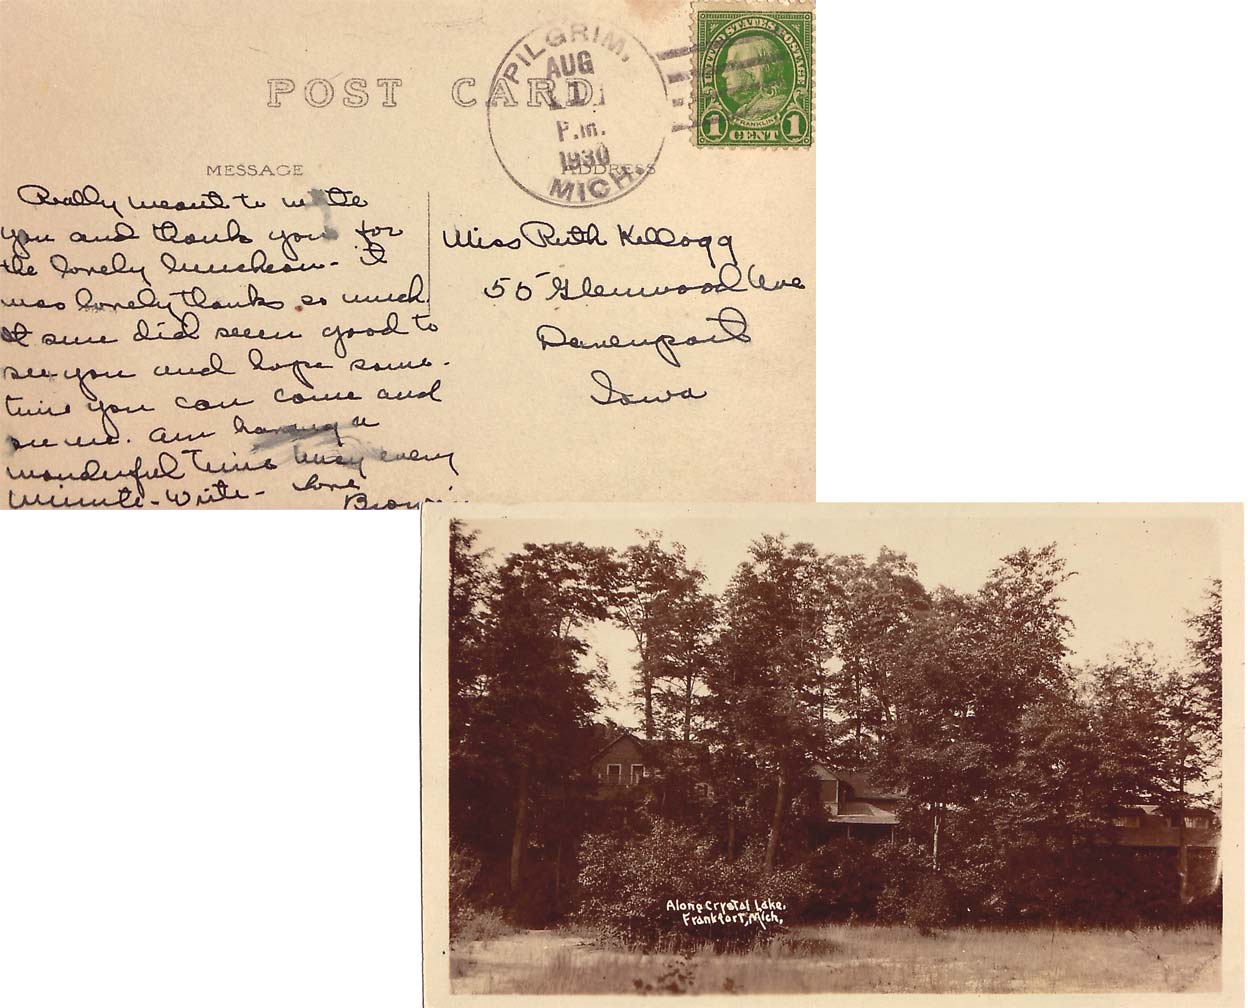 POST CARD
PILGRIM,
AUG
11
P.M.
1930
MICH.
UNITED STATES POSTAGE
FRANKLIN
1 CENT 1
MESSAGE
ADDRESS
Really meant to write
you and thank you for
the lovely luncheon - it
was lovely thanks so much.
It sure did seem good to
see you and hope some-
time you can come and
see me. Am having a
wonderful time busy every
minute - Write - Love
Miss Ruth Kellogg
55 Glenwood Ave
Davenport
Iowa
Along Crystal Lake,
Frankfort, Mich,